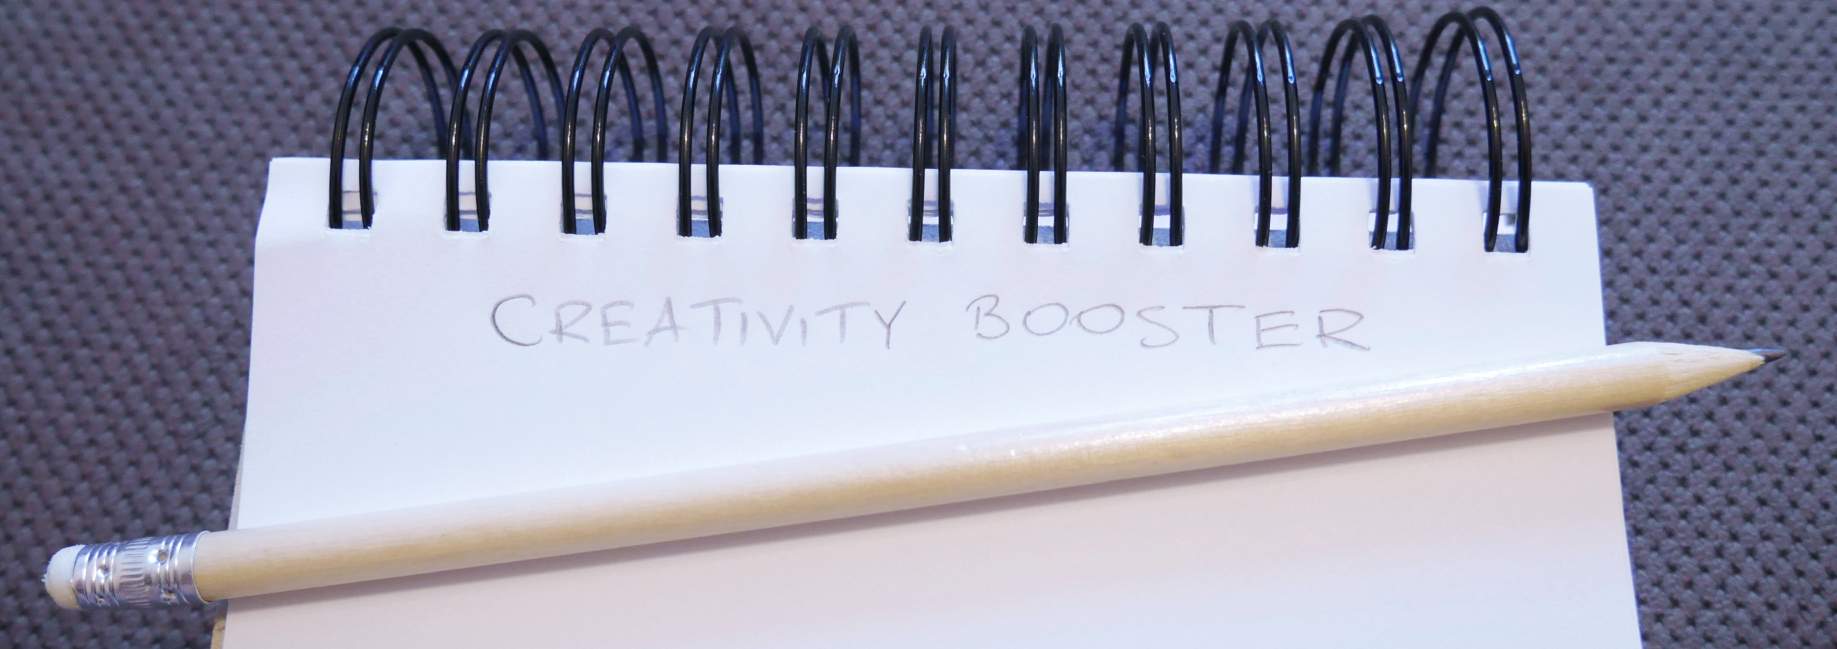 CREATIVITY BOOSTER